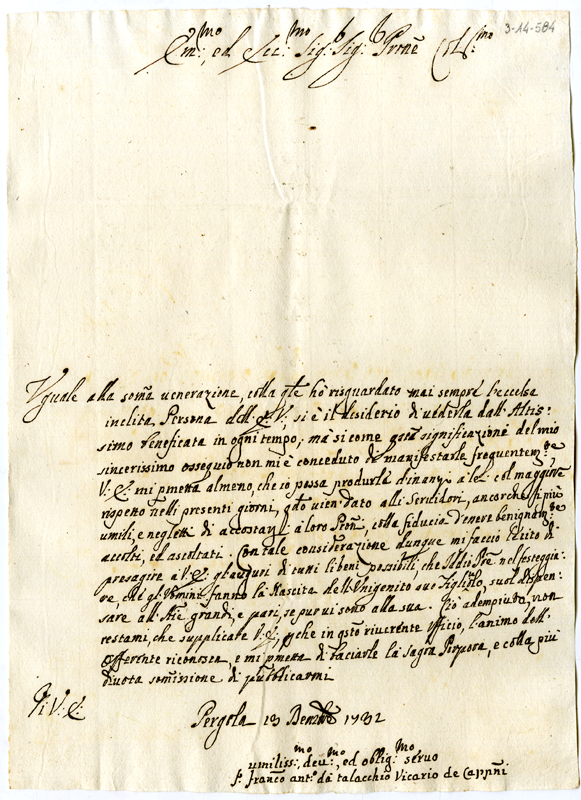 3-A4-584
Em:mo ed Ecc:mo Sig:r Sig:r Prõne Col:mo
Uguale alla soma uenerazione, colla qle hò risguardato mai sempre l'eccelsa
inclita Persona dell'E:V:, si è il desiderio di uederla dall'Altis-
simo beneficata in ogni tempo; mà si come qsta significazione del mio
sincerissimo ossequio non mi è conceduto di manifestarla frequentem:te
V: E: mi pmetta almeno, che io possa produrla dinanzi à lei col maggiore
rispetto nelli presenti giorni, qdo uien dato alli Seruidori, ancorche li più
umili, e negletti di accostarsi à loro Prõni, colla fiducia d'essere benignam:te
accolti, ed ascoltati. Con tale considerazione dunque mi faccio lecito di
presagire à V: E: gl'auguri di tutti li beni possibili, che Iddio Pre nel festeggia-
re, che gl'Uomini fanno la Nascita dell'Unigenito suo Figliolo, suol dispen-
sare all'Aie grandi, e pari, se pur ui sono alla sua. Ciò adempiuto, non
restami, che supplicare V: E:, pche in qsto riuerente ufficio, l'animo dell'
offerente riconosca, e mi pmetta di baciarle la sagra Porpora, e colla più
diuota somissione di pubblicarmi
Di V: E:
Pergola 13 Dembre 1732
umiliss:mo deu:mo, ed oblig:mo seruo
f. Franco Ant:o da Talacchio Vicario de Cappni